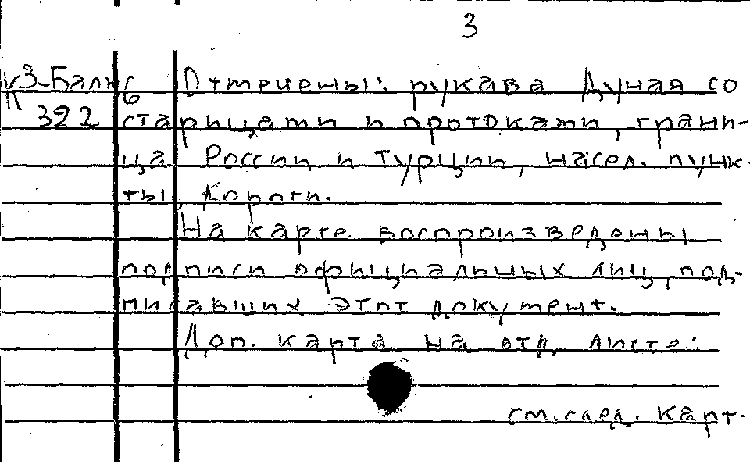 3
К3-Балк 6 Отмечены: рукава Дуная со
322 старицами и протоками, грани-
ца России и Турции, насел. пунк-
ты, дороги.
На карте воспроизведены
подписи официальных лиц, под-
писавших этот документ.
Доп. карта на отд. листе:
см. след. карт.